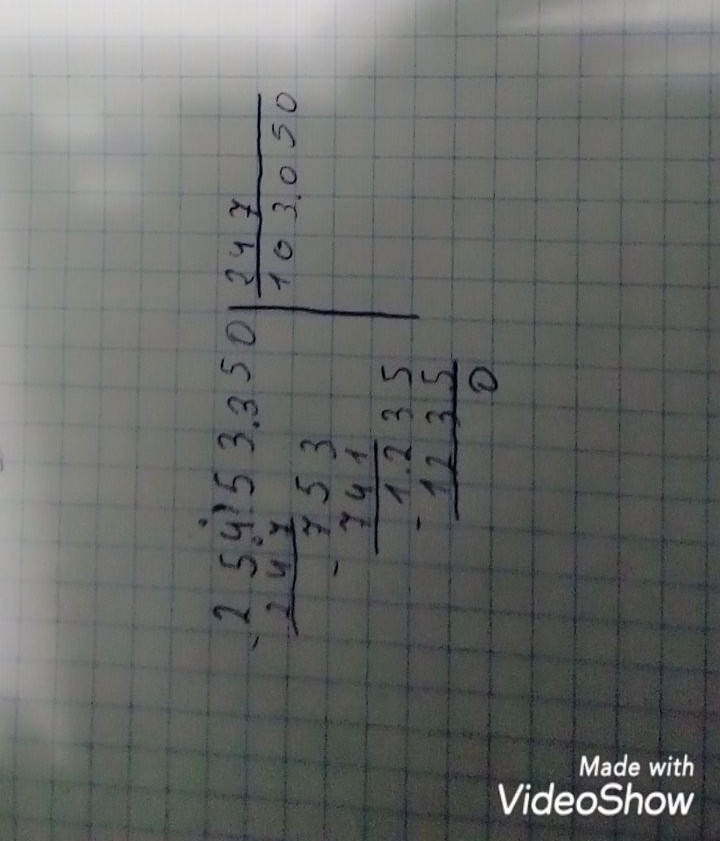 - 25453.350 | 247
247 103.050
753
- 741
1.235
- 1235
0
Made with
VideoShow